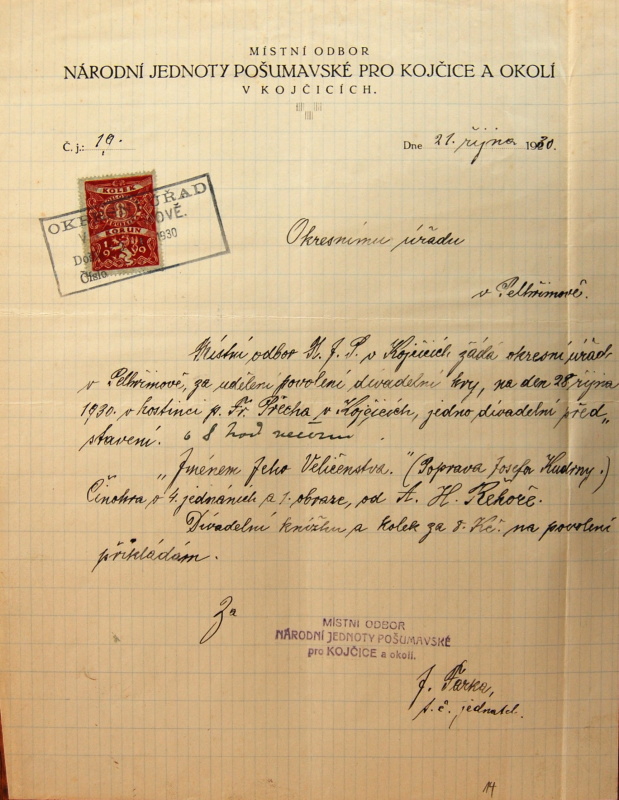 MÍSTNÍ ODBOR
NÁRODNÍ JEDNOTY POŠUMAVSKÉ PRO KOJČICE A OKOLÍ
V KOJČICÍCH.
Č. j.: 19. Dne 21. října 1930.
KOLEK
8
KORUN
1919
OKRESNÍ ÚŘAD
V OVĚ.
Doš 1930
Číslo
Okresnímu úřadu
v Pelhřimově.
Místní odbor N. J. P. v Kojčicích žádá okresní úřad
v Pelhřimově, za udělení povolení divadelní hry, na den 28 října
1930. v hostinci p. Fr. Přecha v Kojčicích, jedno divadelní před„
stavení. o 8 hod večerní.
„Jménem Jeho Veličenstva." (Poprava Josefa Kudrny.)
Činohra o 4. jednáních a 1. obraze, od A. H. Řehoře.
Divadelní knížku a kolek za 8. Kč. na povolení
přikládám.
Za
MÍSTNÍ ODBOR
NÁRODNÍ JEDNOTY POŠUMAVSKÉ
pro KOJČICE a okolí.
t. č. jednatel.
14